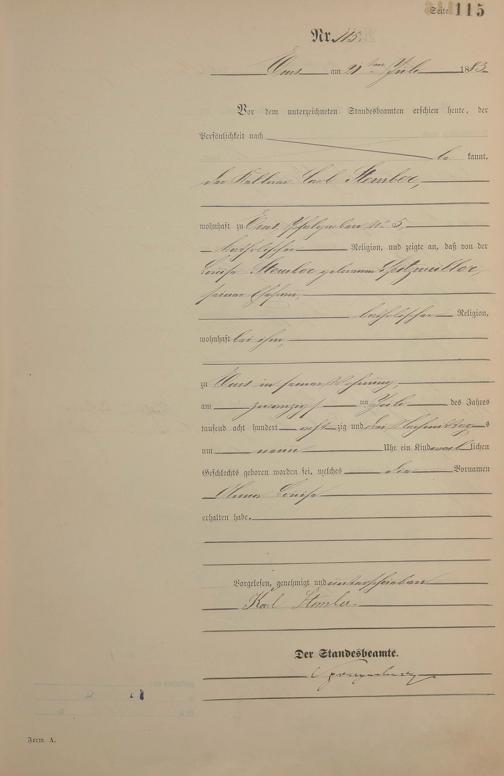 Seite 115
Nr. 115.
Ems am 21ten Juli 1883
Vor dem unterzeichneten Standesbeamten erschien heute, der
Persönlichkeit nach
be kannt,
der Kellner Carl Stember,
wohnhaft zu Ems, No 5,
katholischer Religion, und zeigte an, daß von der
Louise Stember geborenen
seiner Ehefrau,
katholischer Religion,
wohnhaft bei ihm,
zu Ems in seiner Wohnung,
am zwanzigsten Juli des Jahres
tausend acht hundert acht zig und drei
um neun Uhr ein Kind weiblichen
Geschlechts geboren worden sei, welches die Vornamen
Louise
erhalten habe.
Vorgelesen, genehmigt und unterschrieben
Karl Stember.
Der Standesbeamte.
Form. A.